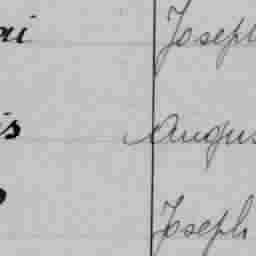 ai Joseph
is Augus
Joseph